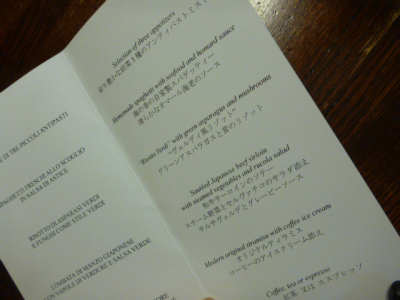 E DI TRE PICCOLI ANTIPASTI
PAGHETTI FRESCHI ALLO SCOGLIO
IN SALSA DI ASTICE
RISOTTO DI ASPARAGI VERDI
E FUNGHI COME STILE VERDI
LOMBATA DI MANZO GIAPONESE
CON NAPOLE DI VERDURE E SALSA VERDE
Selection of three appetizers
彩り豊かな前菜3種のアンティパストミスト
Homemade spaghetti with seafood and homard sauce
海の幸の自家製スパゲッティー
滑らかなオマール海老のソース
"Risotto Verdi" with green asparagus and mushrooms
"ヴェルディ風リゾット"
グリーンアスパラガスと茸のリゾット
Sautéed Japanese beef sirloin
with steamed vegetables and rucola salad
和牛サーロインのソテー
スチーム野菜とセルヴァチコのサラダ添え
サルサヴェルデとグレービーソース
Modern original tiramisu with coffee ice cream
オリジナルティラミス
コーヒーのアイスクリーム添え
Coffee, tea or espresso
紅茶 又は エスプレッソ